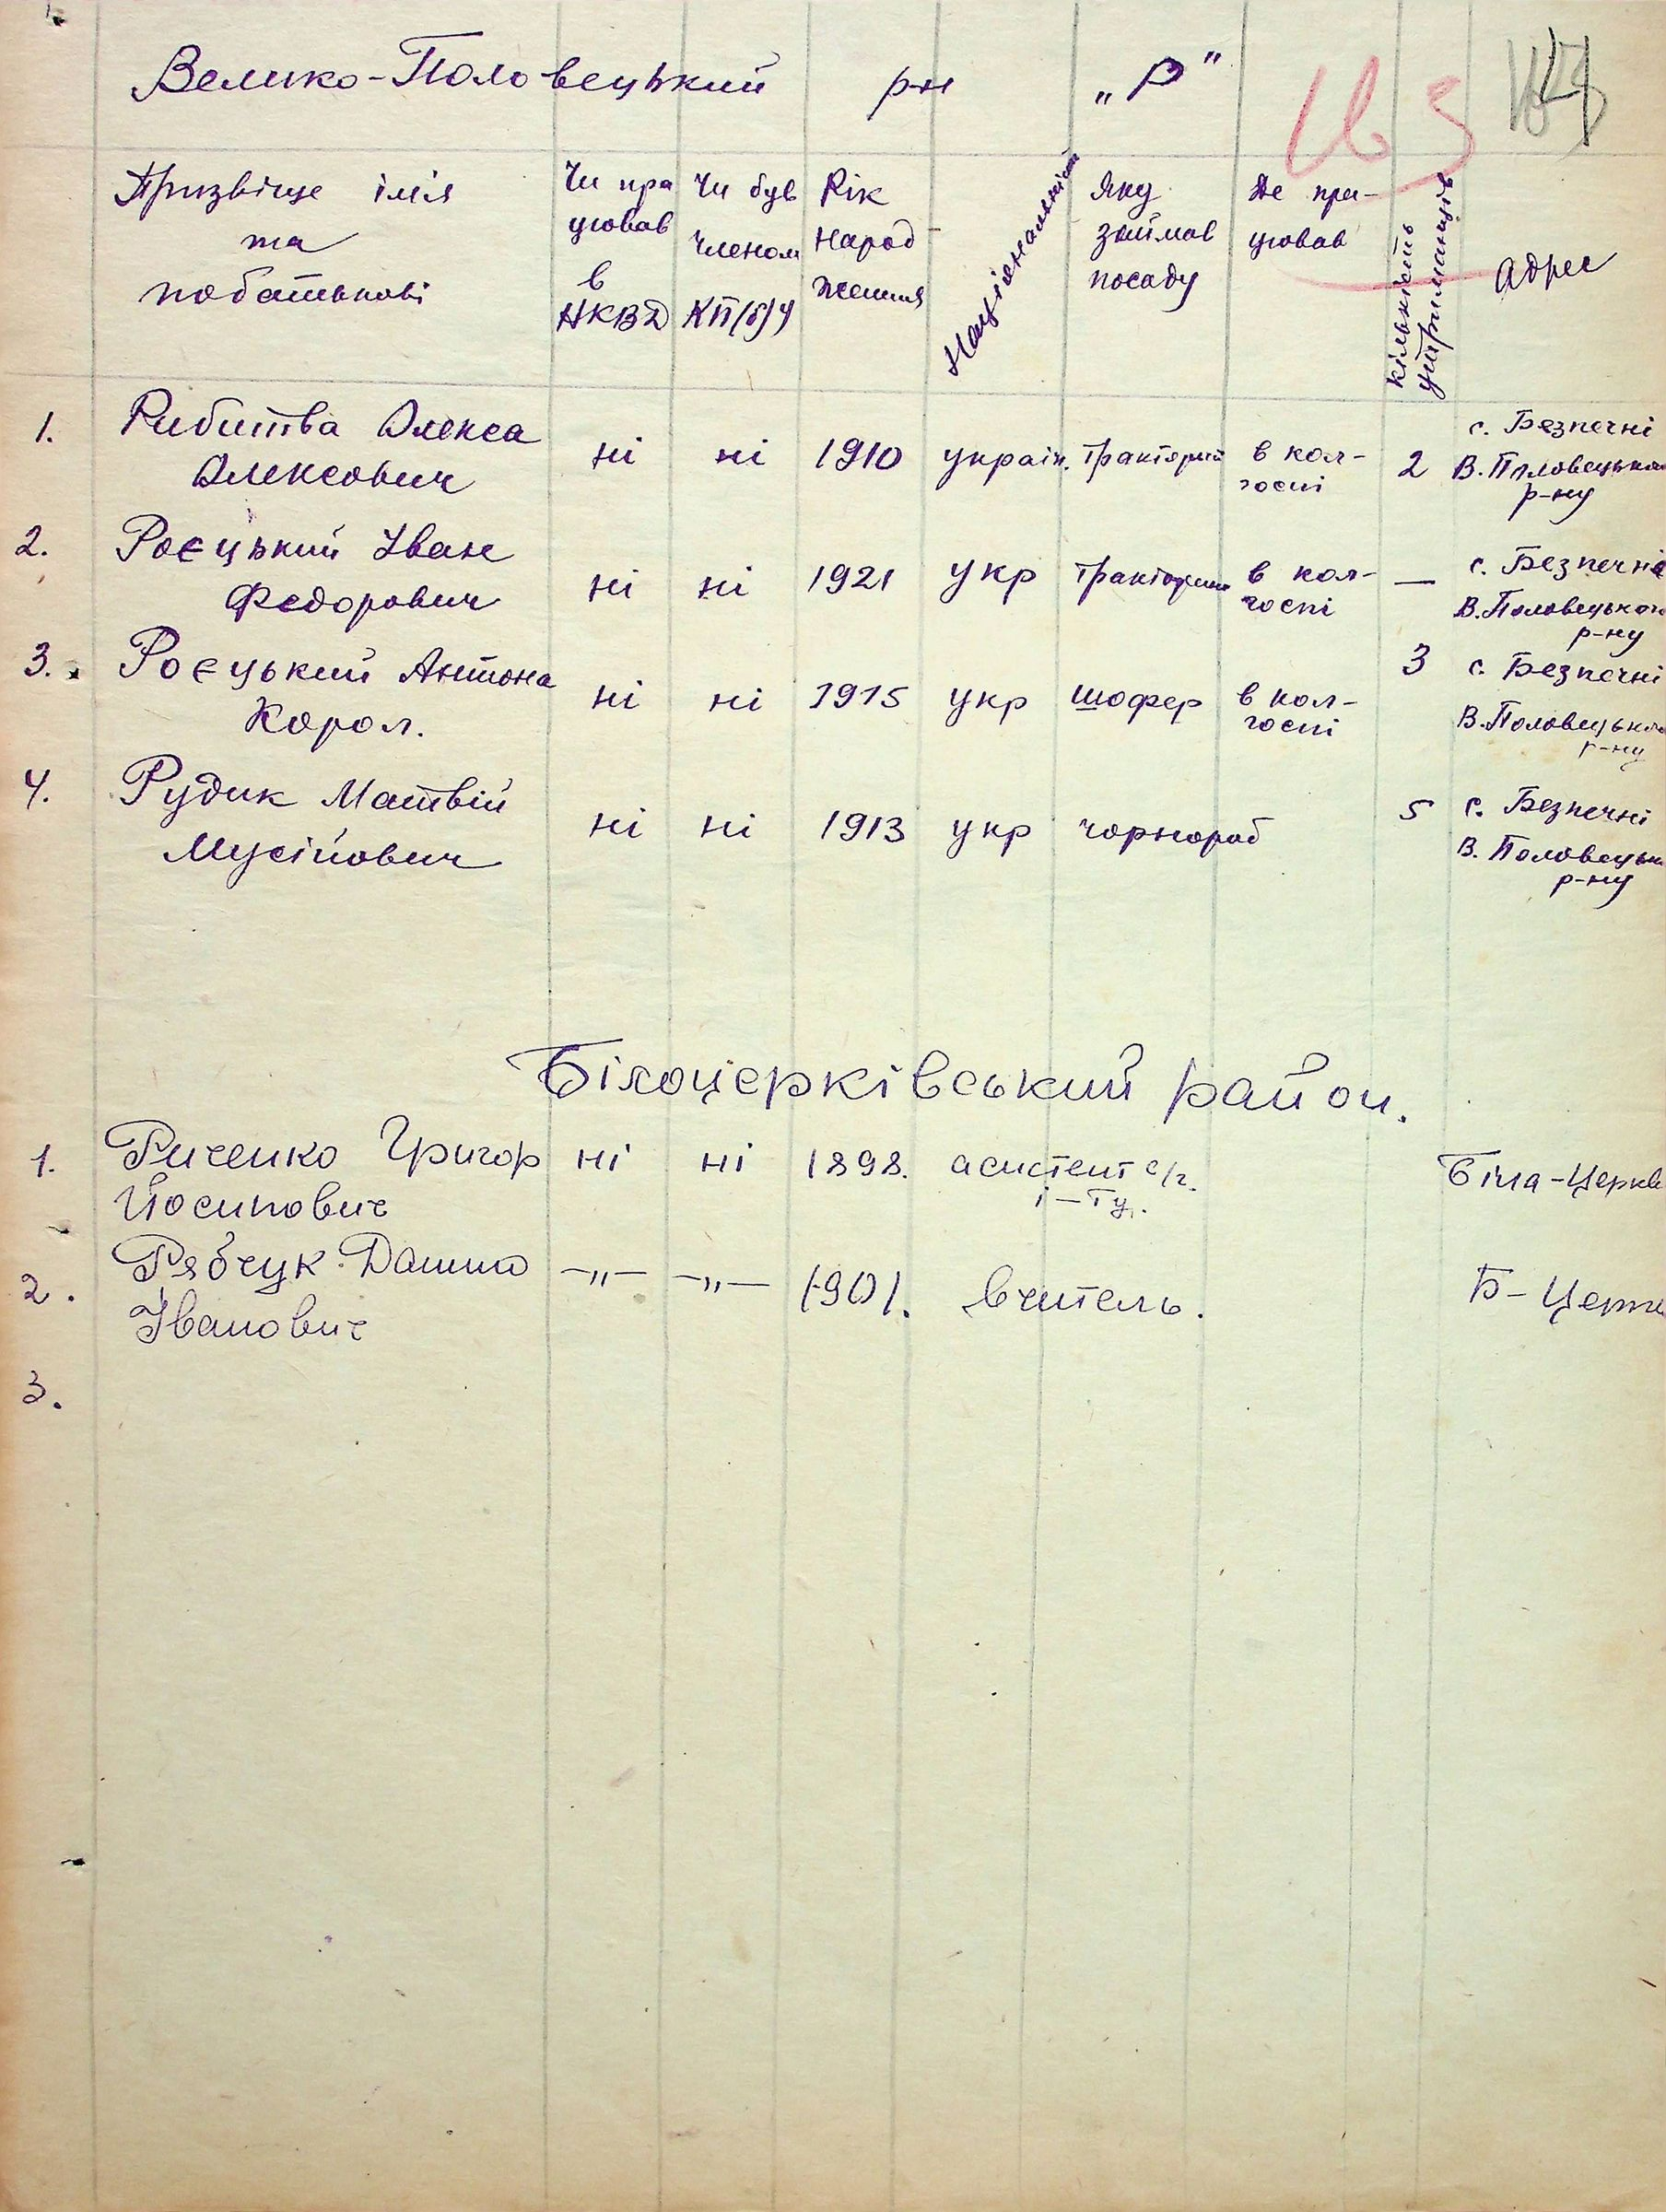 Велико-Половецький р-н „Р"
Призвіще ім'я та побатькові
Чи працював в НКВД
Чи був членом КП(б)У
Рік народження
Національність
Яку займав посаду
Де працював
кількість утриманців
Адрес
1. Рибитва Олекса Олексович ні ні 1910 україн. тракторист в колгоспі 2 с. Безпечні В. Половецького р-ну
2. Роєцький Іван Федорович ні ні 1921 укр тракторист в колгоспі — с. Безпечні В. Половецького р-ну
3. Роєцький Антона Корол. ні ні 1915 укр шофер в колгоспі 3 с. Безпечні В. Половецького р-ну
4. Рудик Матвій Мусійович ні ні 1913 укр чорнороб 5 с. Безпечні В. Половецьк р-ну
Білоцерківський район.
1. Риченко Григор Йосипович ні ні 1898. асистент с/г. і-ту. Біла-Церкв
2. Рябчук Данило Іванович —„— —„— 1901. вчитель. Б-Церк
3.